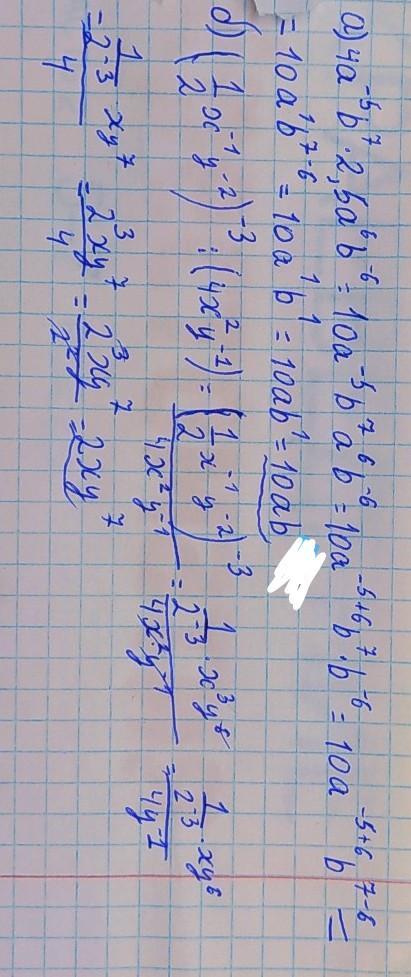 а) 4a⁻⁵b⁷ · 2,5a⁶b⁻⁶ = 10a⁻⁵b⁷a⁶b⁻⁶ = 10a⁻⁵⁺⁶b⁷·b⁻⁶ = 10a⁻⁵⁺⁶b⁷⁻⁶ =
= 10a¹b⁷⁻⁶ = 10a¹b¹ = 10ab¹ = 10ab
б) (1/2 x⁻¹y⁻²)⁻³ : (4x²y⁻¹) = (1/2 x⁻¹y⁻²)⁻³ / 4x²y⁻¹ = 1/2⁻³ · x³y⁶ / 4x²y⁻¹ = 1/2⁻³ · xy⁶ / 4y⁻¹
= 1/2⁻³ · xy⁷ / 4 = 2³xy⁷ / 4 = 2³xy⁷ / 2² = 2xy⁷